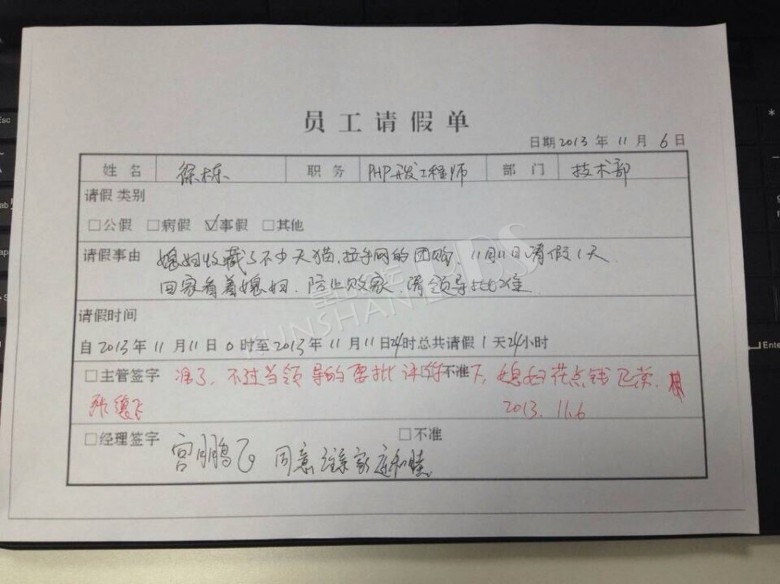 员工请假单
日期 2013 年 11 月 6 日
姓名 徐栋 职务 PHP开发工程师 部门 技术部
请假类别
□公假 □病假 ☑事假 □其他
请假事由 媳妇收藏了不少天猫、拉手网的团购,11月11日请假1天
回家看着媳妇,防止败家,请领导批准
请假时间
自 2013 年 11 月 11 日 0 时至 2013 年 11 月 11 日 24 时总共请假 1 天 24 小时
□主管签字 准了,不过当领导的要批评 □不准 下,媳妇花点钱
2013.11.6
□经理签字 □不准
宫鹏飞 同意 家庭和睦
KUNSHAN BBS
Esc
Enter